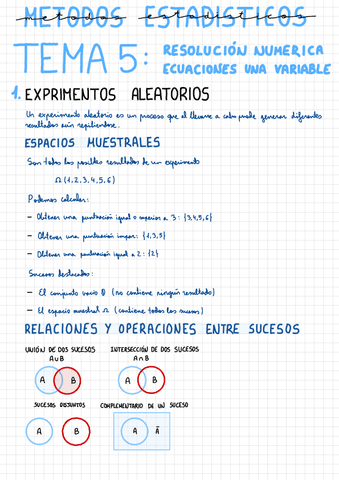 METODOS ESTADISTICOS
TEMA 5: RESOLUCIÓN NUMERICA
ECUACIONES UNA VARIABLE
1. EXPRIMENTOS ALEATORIOS
Un experimento aleatorio es un proceso que al llevarse a cabo puede generar diferentes
resultados aún repitiendose.
ESPACIOS MUESTRALES
Son todos los posibles resultados de un experimento
Ω (1,2,3,4,5,6)
Podemos calcular:
- Obtener una puntuación igual o superior a 3: {3,4,5,6}
- Obtener una puntuación impar: {1,3,5}
- Obtener una puntuación igual a 2: {2}
Sucesos destacados:
- El conjunto vacio Ø (no contiene ningún resultado)
- El espacio muestral Ω (contiene todos los sucesos)
RELACIONES Y OPERACIONES ENTRE SUCESOS
UNIÓN DE DOS SUCESOS
A∪B
A B
INTERSECCIÓN DE DOS SUCESOS
A∩B
A B
SUCESOS DISJUNTOS
A B
COMPLEMENTARIO DE UN SUCESO
A Ā